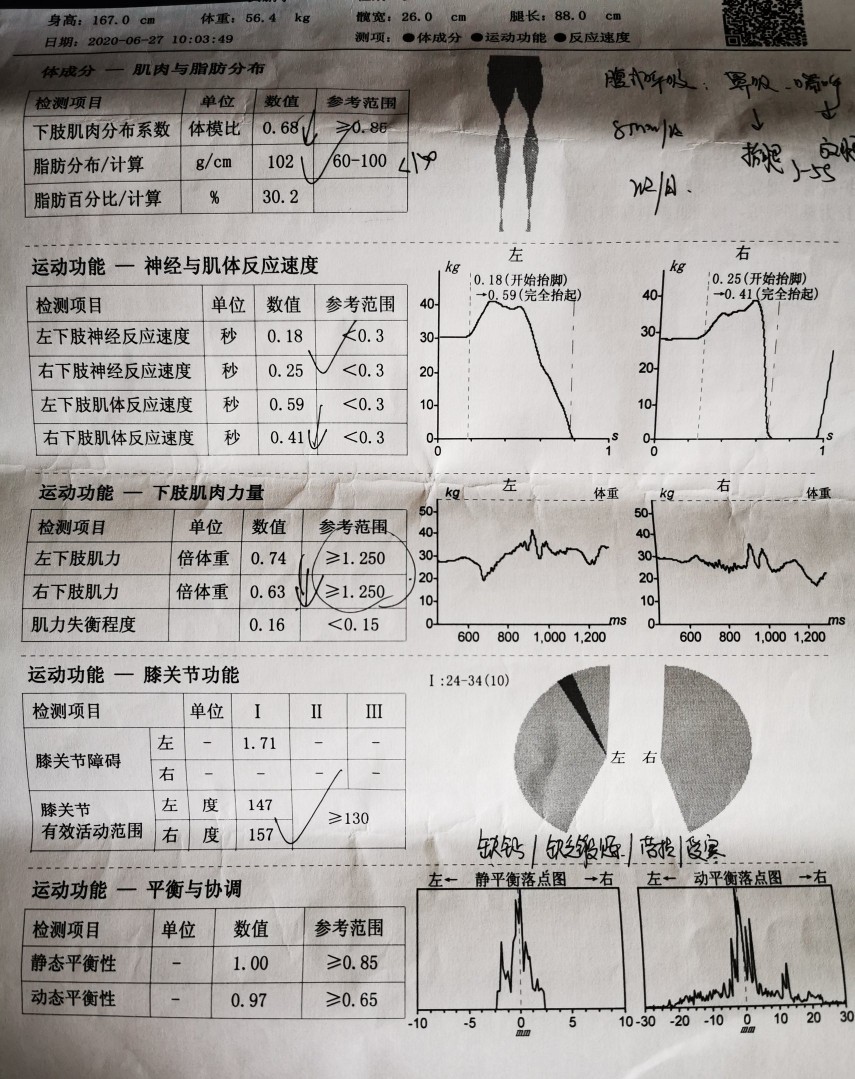 身高: 167.0 cm 体重: 56.4 kg 髋宽: 26.0 cm 腿长: 88.0 cm
日期: 2020-06-27 10:03:49 测项: ●体成分 ●运动功能 ●反应速度
体成分 — 肌肉与脂肪分布
检测项目 单位 数值 参考范围
下肢肌肉分布系数 体模比 0.68 ≥0.85
脂肪分布/计算 g/cm 102 60-100
脂肪百分比/计算 % 30.2
腹式呼吸:
运动功能 — 神经与肌体反应速度
检测项目 单位 数值 参考范围
左下肢神经反应速度 秒 0.18 <0.3
右下肢神经反应速度 秒 0.25 <0.3
左下肢肌体反应速度 秒 0.59 <0.3
右下肢肌体反应速度 秒 0.41 <0.3
左
kg
0.18(开始抬脚)
→0.59(完全抬起)
40
30
20
10
0 1 s
右
kg
0.25(开始抬脚)
→0.41(完全抬起)
40
30
20
10
0
0 1 s
运动功能 — 下肢肌肉力量
检测项目 单位 数值 参考范围
左下肢肌力 倍体重 0.74 ≥1.250
右下肢肌力 倍体重 0.63 ≥1.250
肌力失衡程度 0.16 <0.15
kg 左 体重
50
40
30
20
0 ms
600 800 1,000 1,200
kg 右 体重
50
40
30
20
10
0 ms
600 800 1,000 1,200
运动功能 — 膝关节功能
检测项目 单位 I II III
膝关节障碍 左 - 1.71 - -
右 - - - -
膝关节有效活动范围 左 度 147 ≥130
右 度 157
I:24-34(10)
左 右
缺钙 / 缺乏锻炼 / 劳损 / 受寒
运动功能 — 平衡与协调
检测项目 单位 数值 参考范围
静态平衡性 - 1.00 ≥0.85
动态平衡性 - 0.97 ≥0.65
左← 静平衡落点图 →右
-10 -5 0 5 10
mm
左← 动平衡落点图 →右
-30 -20 -10 0 10 20 30
mm